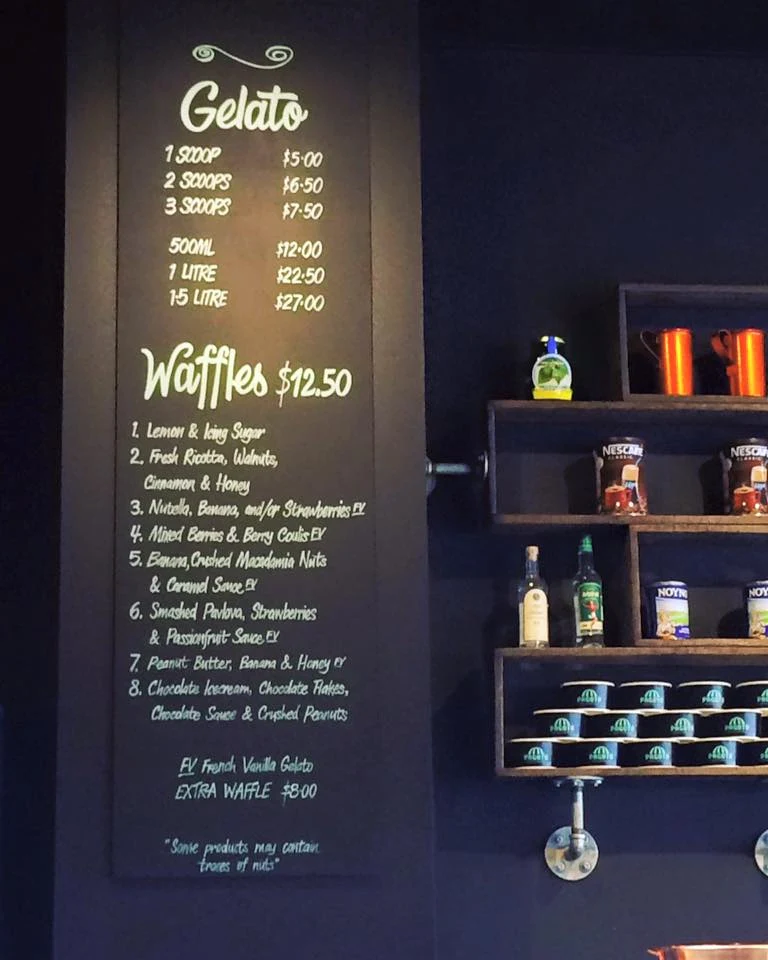 Gelato
1 SCOOP $5.00
2 SCOOPS $6.50
3 SCOOPS $7.50
500ML $12.00
1 LITRE $22.50
1.5 LITRE $27.00
Waffles $12.50
1. Lemon & Icing Sugar
2. Fresh Ricotta, Walnuts,
Cinnamon & Honey
3. Nutella, Banana, and/or Strawberries FV
4. Mixed Berries & Berry Coulis FV
5. Banana, Crushed Macadamia Nuts
& Caramel Sauce FV
6. Smashed Pavlova, Strawberries
& Passionfruit Sauce FV
7. Peanut Butter, Banana & Honey FV
8. Chocolate Icecream, Chocolate Flakes,
Chocolate Sauce & Crushed Peanuts
FV French Vanilla Gelato
EXTRA WAFFLE $8.00
"Some products may contain
traces of nuts"
NESCAFÉ
CLASSIC
NESCAFÉ
CLASSIC
NOYNO
NOY